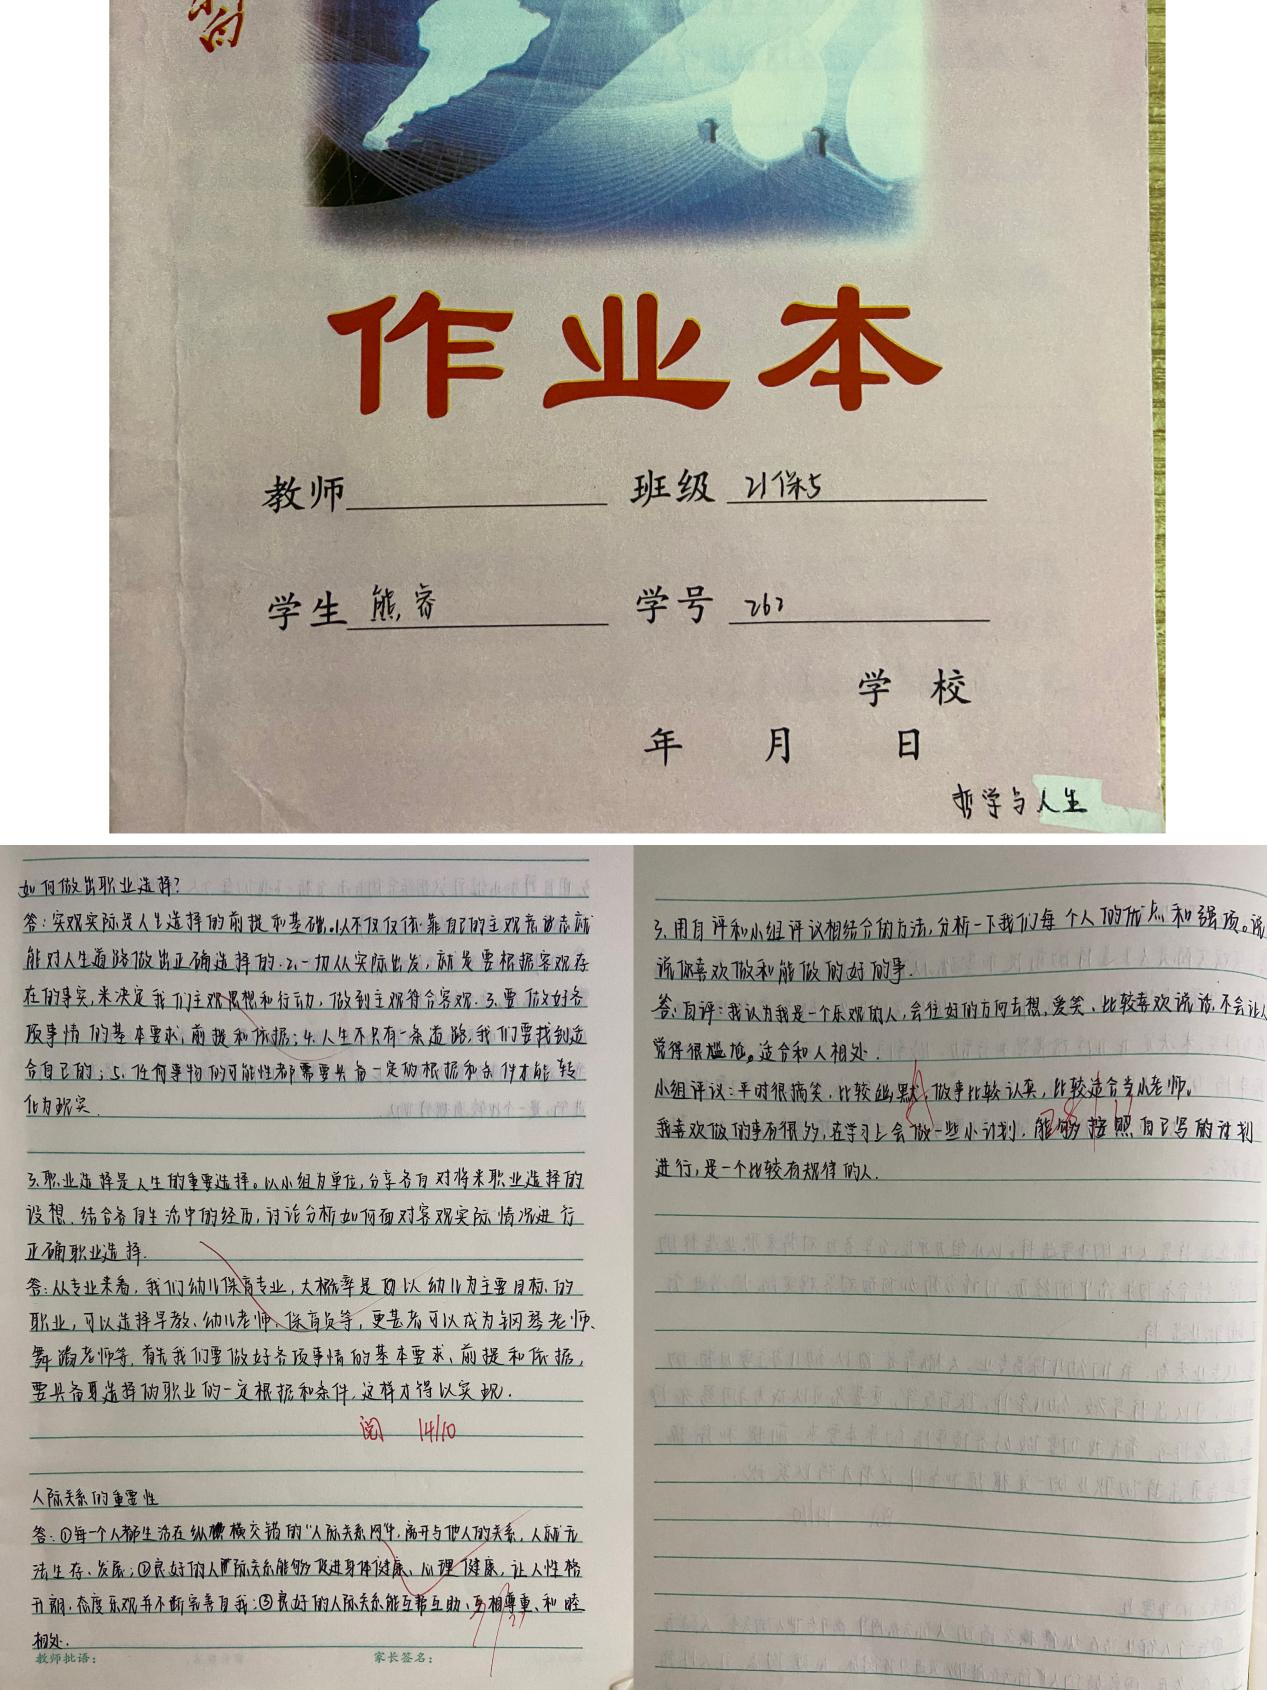 习
作业本
教师 班级 21保5
学生 熊睿 学号 262
学 校
年 月 日
哲学与人生
如何做出职业选择?
答:实观实际是人生选择的前提和基础。1.从不仅仅依靠自己的主观意识志就
能对人生道路做出正确选择的.2.一切从实际出发,就是要根据客观存
在的事实,来决定我们主观思想和行动,做到主观符合客观.3.要做好各
项事情的基本要求,前提和依据;4.人生不只有一条道路,我们要找到适
合自己的;5.任何事物的可能性都需要具备一定的根据和条件才能转
化为现实.
3.职业选择是人生的重要选择。以小组为单位,分享各自对将来职业选择的
设想.结合各自生活中的经历,讨论分析如何面对客观实际情况进行
正确职业选择.
答:从专业来看,我们幼儿保育专业,大概率是以幼儿为主要目标的
职业,可以选择早教、幼儿老师、保育员等,更甚者可以成为钢琴老师、
舞蹈老师等,首先我们要做好各项事情的基本要求、前提和依据,
要具备选择的职业的一定根据和条件,这样才得以实现.
阅 14/10
人际关系的重要性
答:①每一个人都生活在纵横交错的“人际关系网”中,离开与他人的关系,人就无
法生存、发展;②良好的人际关系能够促进身体健康、心理健康,让人性格
开朗,态度乐观并不断完善自我;③良好的人际关系能互帮互助、互相尊重、和睦
相处.
教师批语: 家长签名:
3.用自评和小组评议相结合的方法,分析一下我们每个人的优点和强项。说
说你喜欢做和能做的好的事.
答:自评:我认为我是一个乐观的人,会往好的方向去想,爱笑、比较喜欢说话,不会让人
觉得很尴尬。适合和人相处.
小组评议:平时很搞笑、比较幽默,做事比较认真,比较适合当小老师.
我喜欢做的事有很多,在学习上会做一些小计划,能够按照自己写的计划
进行,是一个比较有规律的人.